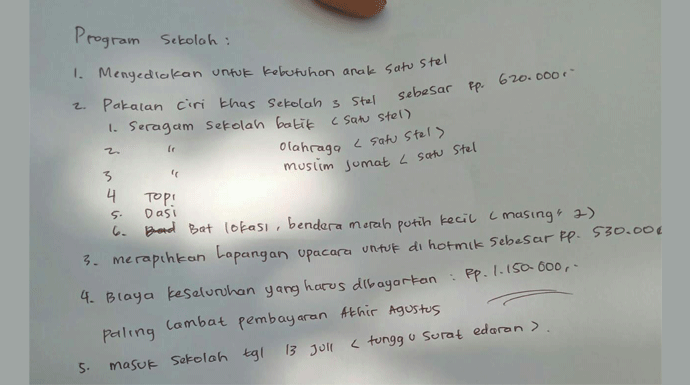 Program Sekolah :
1. Menyediakan untuk kebutuhan anak satu stel
2. Pakaian ciri khas sekolah 3 stel sebesar Rp. 620.000,-
1. Seragam sekolah batik < satu stel>
2. " olahraga < satu stel >
3 " muslim jumat < satu stel
4 Topi
5. Dasi
6. Bat lokasi, bendera merah putih kecil < masing" 2>
3. merapihkan Lapangan upacara untuk di hotmik sebesar Rp. 530.000
4. Biaya keseluruhan yang harus dibayarkan : Rp. 1.150.000,-
paling lambat pembayaran Akhir Agustus
5. masuk sekolah tgl 13 Juli < tunggu surat edaran > .